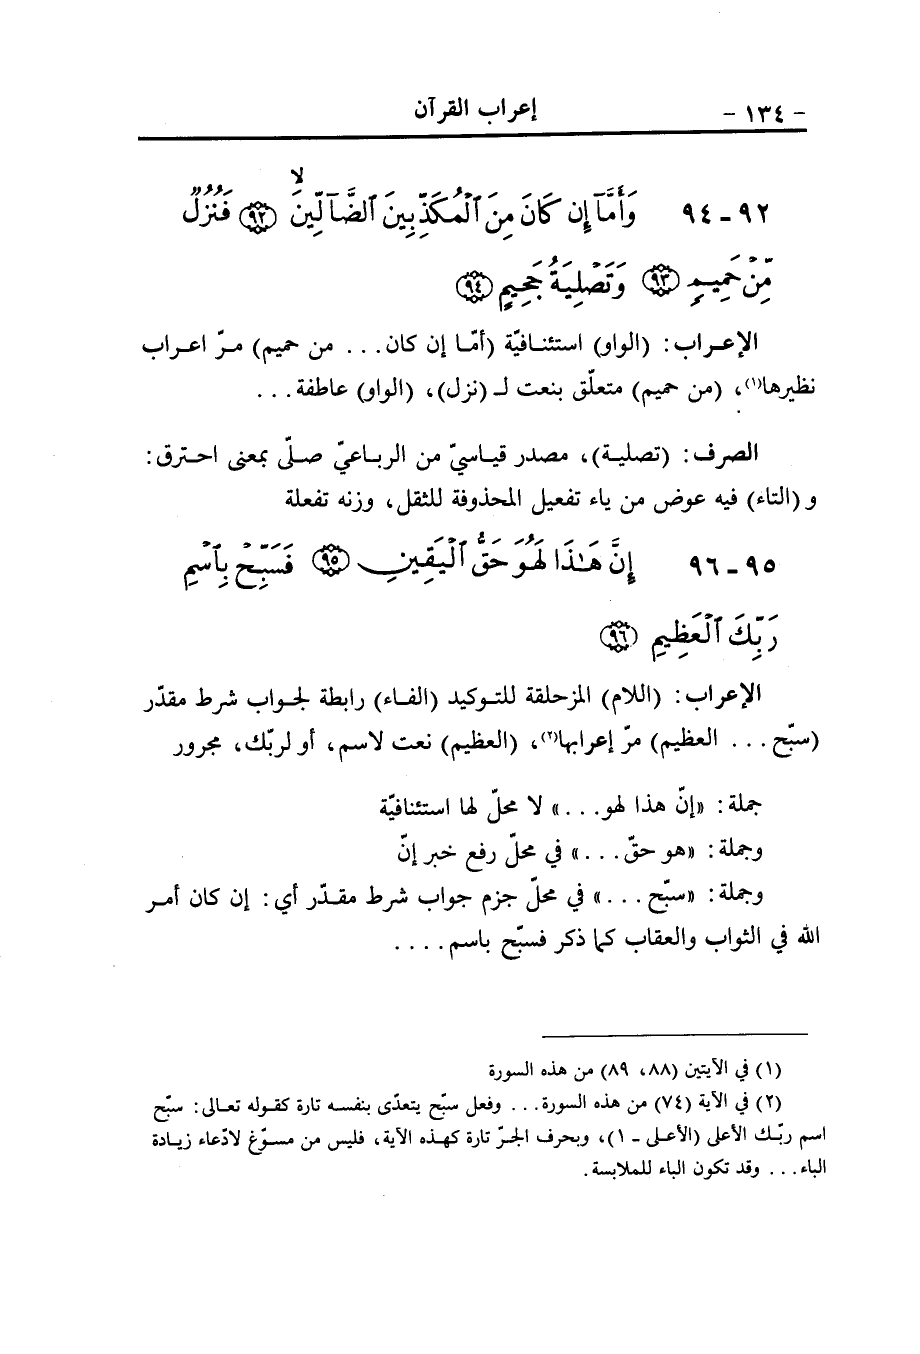 - ١٣٤ - إعراب القرآن
٩٢ - ٩٤ وَأَمَّآ إِن كَانَ مِنَ ٱلْمُكَذِّبِينَ ٱلضَّآلِّينَۙ ﴿٩٢﴾ فَنُزُلٌ
مِّنْ حَمِيمٍ ﴿٩٣﴾ وَتَصْلِيَةُ جَحِيمٍ ﴿٩٤﴾
الإعراب: (الواو) استئنافيّة (أمّا إن كان... من حميم) مرّ اعراب
نظيرها(١)، (من حميم) متعلّق بنعت لـ (نزل)، (الواو) عاطفة...
الصرف: (تصلية)، مصدر قياسيّ من الرباعيّ صلّى بمعنى احترق:
و (التاء) فيه عوض من ياء تفعيل المحذوفة للثقل، وزنه تفعلة
٩٥ - ٩٦ إِنَّ هَـٰذَا لَهُوَ حَقُّ ٱلْيَقِينِ ﴿٩٥﴾ فَسَبِّحْ بِٱسْمِ
رَبِّكَ ٱلْعَظِيمِ ﴿٩٦﴾
الإعراب: (اللام) المزحلقة للتوكيد (الفاء) رابطة لجواب شرط مقدّر
(سبّح... العظيم) مرّ إعرابها(٢)، (العظيم) نعت لاسم، أو لربّك، مجرور
جملة: «إنّ هذا لهو...» لا محلّ لها استئنافيّة
وجملة: «هو حقّ...» في محلّ رفع خبر إنّ
وجملة: «سبّح...» في محلّ جزم جواب شرط مقدّر أي: إن كان أمر
الله في الثواب والعقاب كما ذكر فسبّح باسم....
(١) في الآيتين (٨٨، ٨٩) من هذه السورة
(٢) في الآية (٧٤) من هذه السورة... وفعل سبّح يتعدّى بنفسه تارة كقوله تعالى: سبّح
اسم ربّك الأعلى (الأعلى - ١)، وبحرف الجرّ تارة كهذه الآية، فليس من مسوّغ لادّعاء زيادة
الباء... وقد تكون الباء للملابسة.